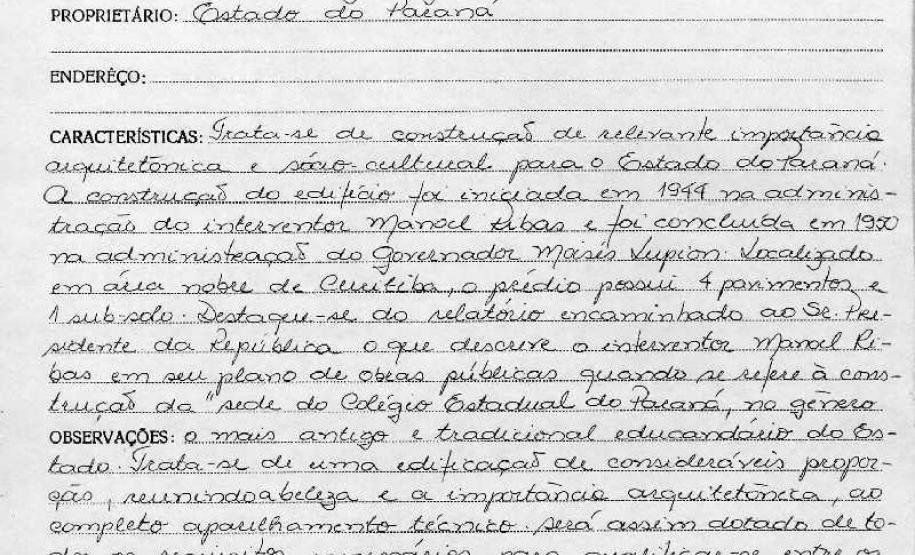 PROPRIETÁRIO: Estado do Paraná
ENDERÊÇO:
CARACTERÍSTICAS: Trata-se de construção de relevante importância
arquitetônica e sócio-cultural para o Estado do Paraná.
A construção do edifício foi iniciada em 1944 na adminis-
tração do interventor Manoel Ribas e foi concluída em 1950
na administração do Governador Moisés Lupion. Localizado
em área nobre de Curitiba, o prédio possui 4 pavimentos e
1 sub-solo. Destaque-se do relatório encaminhado ao Sr. Pre-
sidente da República o que descreve o interventor Manoel Ri-
bas em seu plano de obras públicas quando se refere à cons-
trução da "sede do Colégio Estadual do Paraná, no gênero
OBSERVAÇÕES: o mais antigo e tradicional educandário do Es-
tado. Trata-se de uma edificação de consideráveis propor-
ção, reunindo a beleza e a importância arquitetônica, ao
completo aparelhamento técnico. Será assim dotado de to-
dos os requisitos necessários para qualificar-se entre os